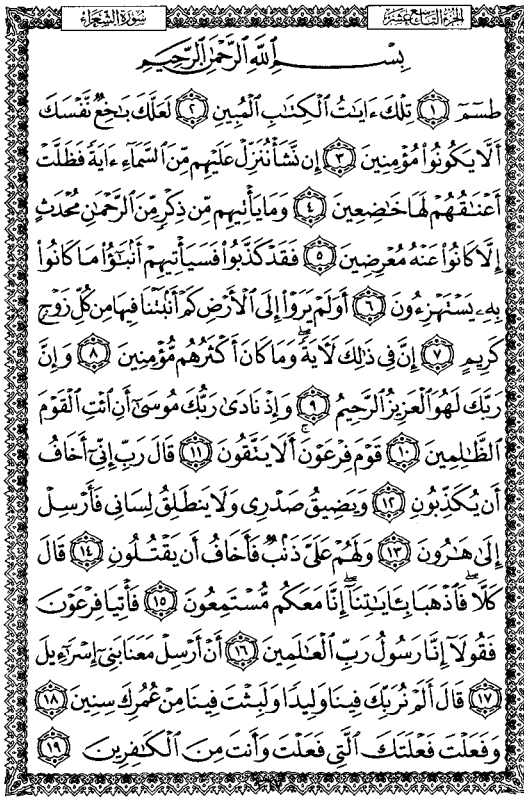 الجزء التاسع عشر
سورة الشعراء
بِسْمِ اللَّهِ الرَّحْمَٰنِ الرَّحِيمِ
طسٓمٓ ١ تِلْكَ ءَايَٰتُ الْكِتَٰبِ الْمُبِينِ ٢ لَعَلَّكَ بَٰخِعٌ نَّفْسَكَ
أَلَّا يَكُونُوا۟ مُؤْمِنِينَ ٣ إِن نَّشَأْ نُنَزِّلْ عَلَيْهِم مِّنَ السَّمَآءِ ءَايَةً فَظَلَّتْ
أَعْنَٰقُهُمْ لَهَا خَٰضِعِينَ ٤ وَمَا يَأْتِيهِم مِّن ذِكْرٍ مِّنَ الرَّحْمَٰنِ مُحْدَثٍ
إِلَّا كَانُوا۟ عَنْهُ مُعْرِضِينَ ٥ فَقَدْ كَذَّبُوا۟ فَسَيَأْتِيهِمْ أَنۢبَٰٓؤُا۟ مَا كَانُوا۟
بِهِۦ يَسْتَهْزِءُونَ ٦ أَوَلَمْ يَرَوْا۟ إِلَى الْأَرْضِ كَمْ أَنۢبَتْنَا فِيهَا مِن كُلِّ زَوْجٍ
كَرِيمٍ ٧ إِنَّ فِى ذَٰلِكَ لَءَايَةً ۖ وَمَا كَانَ أَكْثَرُهُم مُّؤْمِنِينَ ٨ وَإِنَّ
رَبَّكَ لَهُوَ الْعَزِيزُ الرَّحِيمُ ٩ وَإِذْ نَادَىٰ رَبُّكَ مُوسَىٰٓ أَنِ ائْتِ الْقَوْمَ
الظَّٰلِمِينَ ١٠ قَوْمَ فِرْعَوْنَ ۚ أَلَا يَتَّقُونَ ١١ قَالَ رَبِّ إِنِّىٓ أَخَافُ
أَن يُكَذِّبُونِ ١٢ وَيَضِيقُ صَدْرِى وَلَا يَنطَلِقُ لِسَانِى فَأَرْسِلْ
إِلَىٰ هَٰرُونَ ١٣ وَلَهُمْ عَلَىَّ ذَنۢبٌ فَأَخَافُ أَن يَقْتُلُونِ ١٤ قَالَ
كَلَّا ۖ فَاذْهَبَا بِـَٔايَٰتِنَآ ۖ إِنَّا مَعَكُم مُّسْتَمِعُونَ ١٥ فَأْتِيَا فِرْعَوْنَ
فَقُولَآ إِنَّا رَسُولُ رَبِّ الْعَٰلَمِينَ ١٦ أَنْ أَرْسِلْ مَعَنَا بَنِىٓ إِسْرَٰٓءِيلَ
١٧ قَالَ أَلَمْ نُرَبِّكَ فِينَا وَلِيدًا وَلَبِثْتَ فِينَا مِنْ عُمُرِكَ سِنِينَ ١٨
وَفَعَلْتَ فَعْلَتَكَ الَّتِى فَعَلْتَ وَأَنتَ مِنَ الْكَٰفِرِينَ ١٩